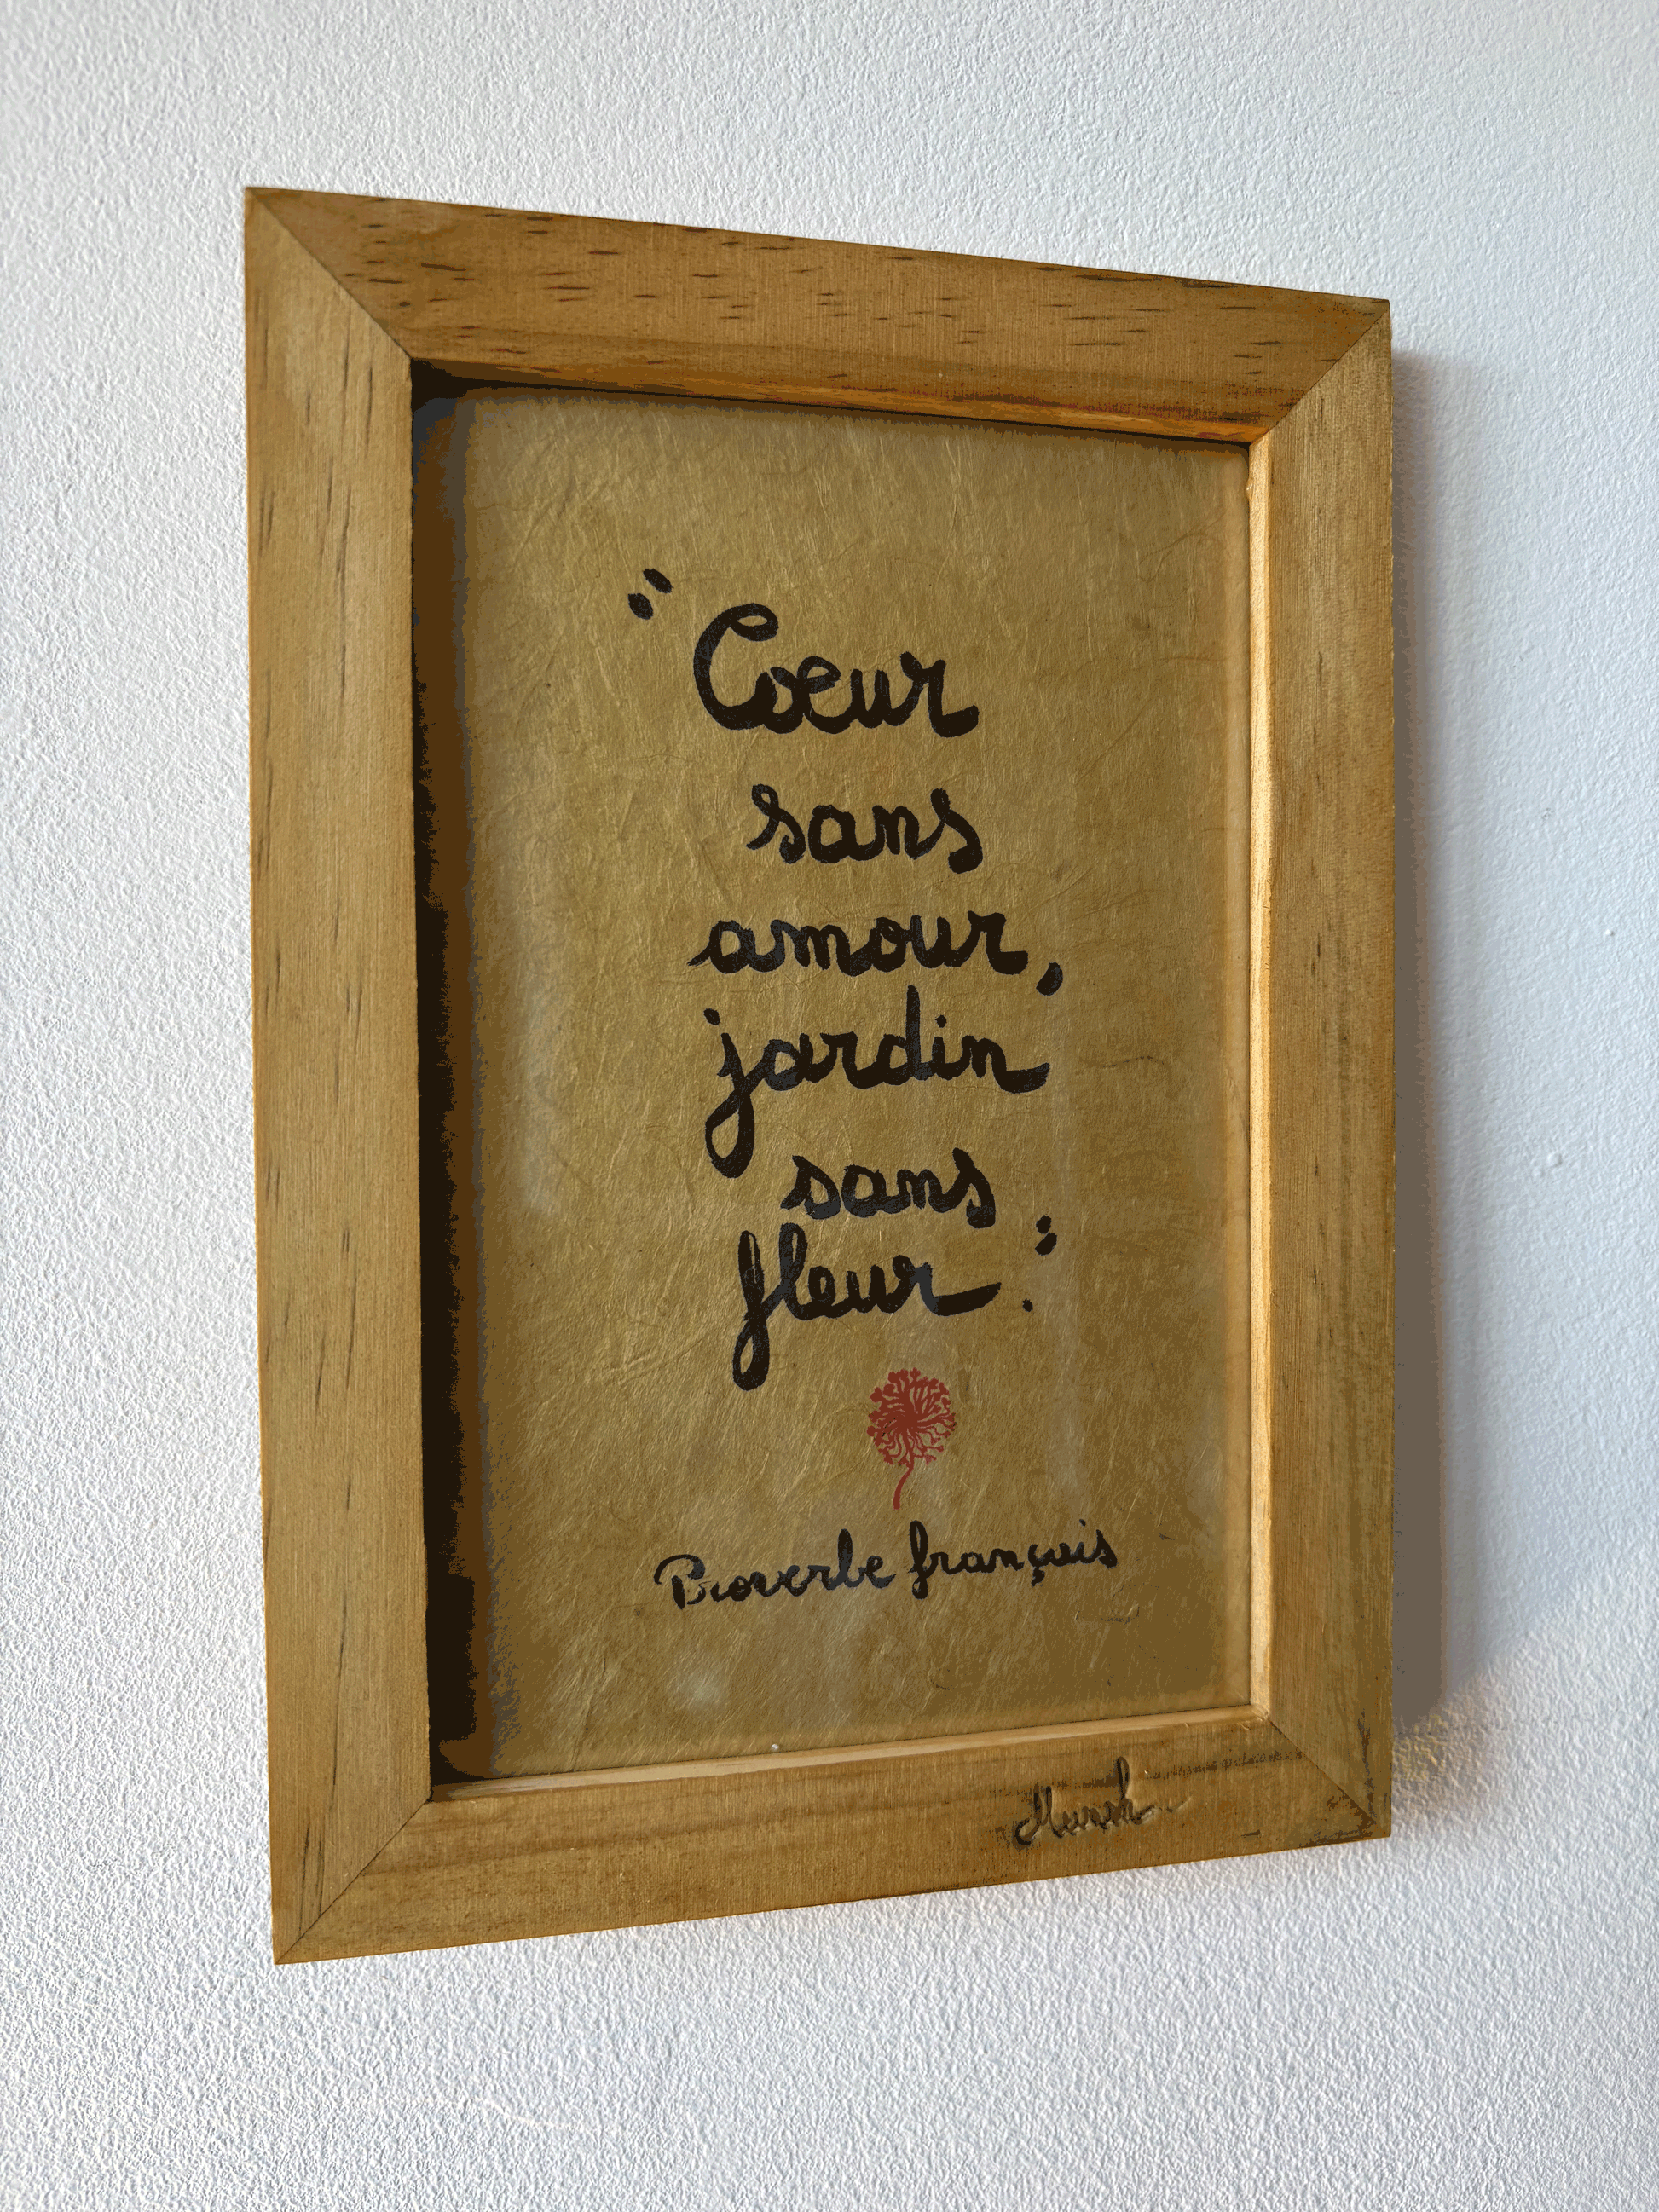 "Cœur
sans
amour,
jardin
sans
fleur."
Proverbe français